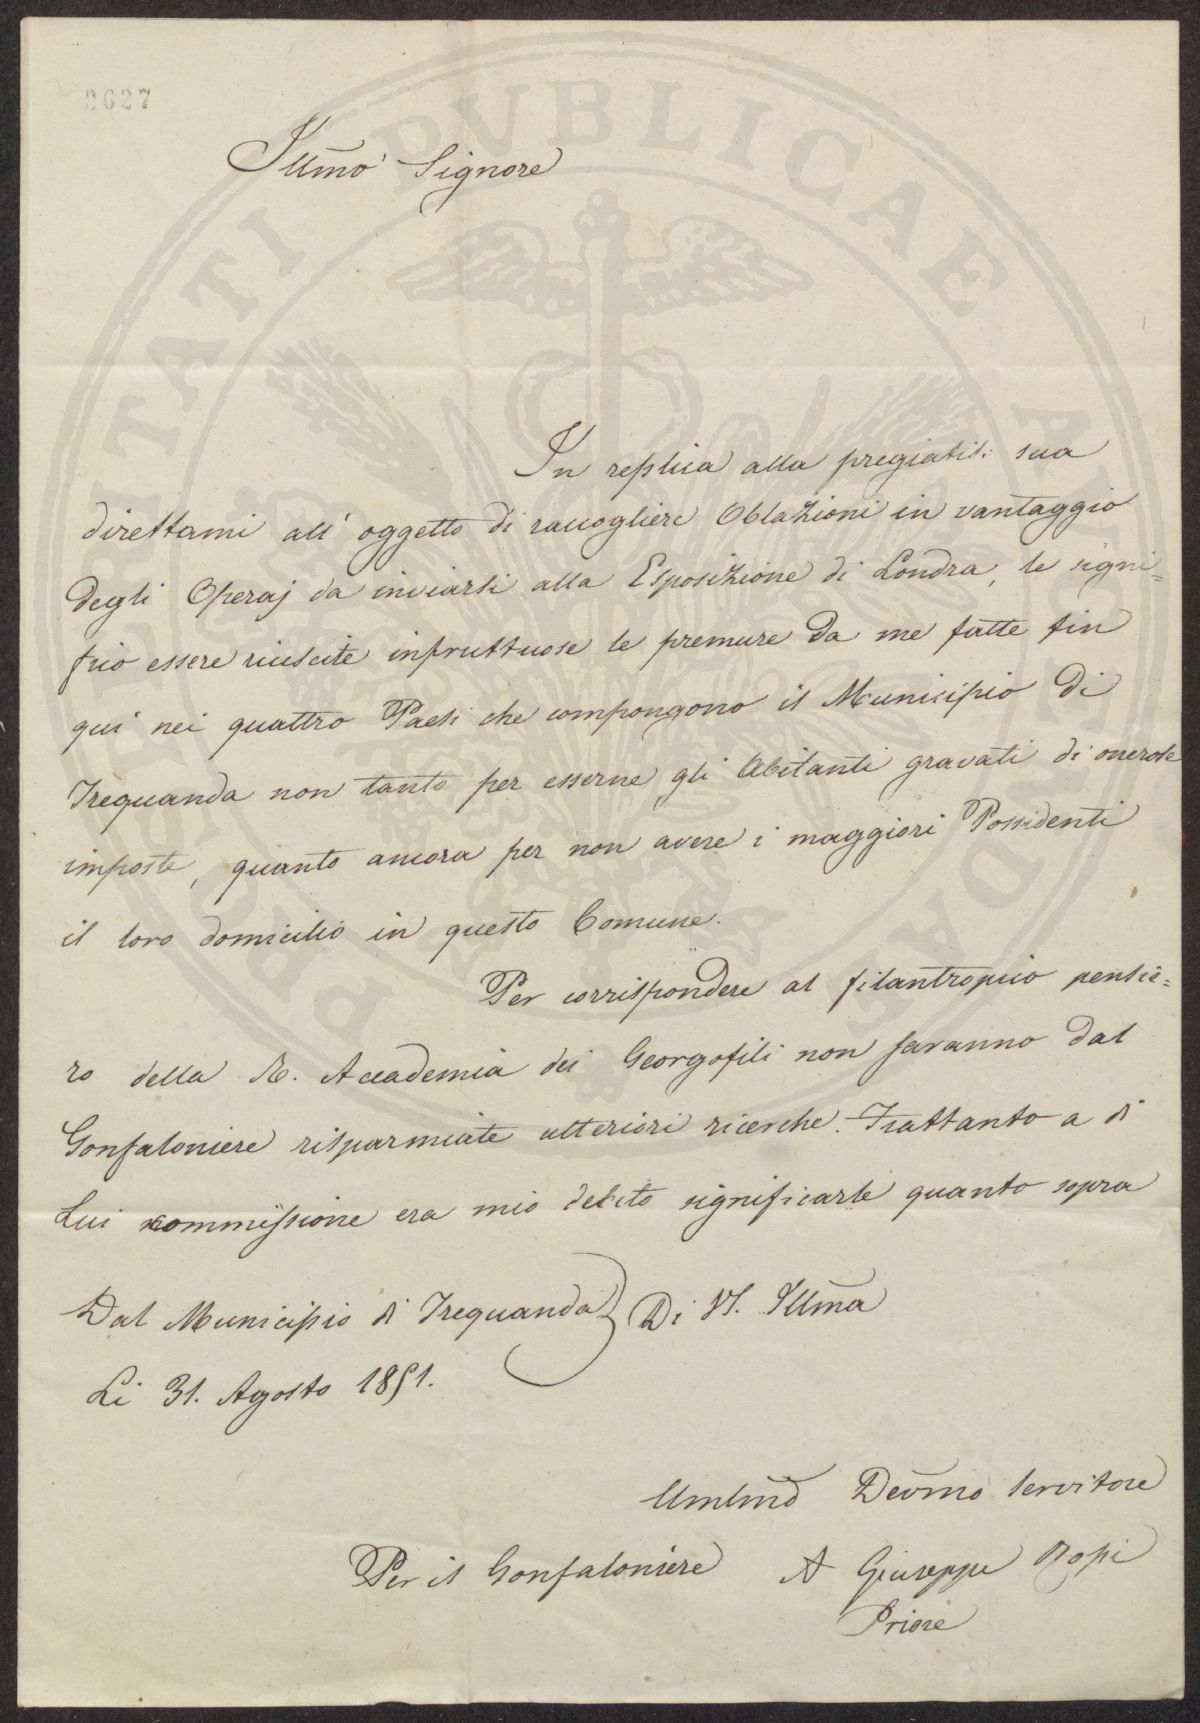 2627
Illmo Signore
In replica alla pregiatis: sua
direttami all' oggetto di raccogliere Oblazioni in vantaggio
degli Operaj da inviarsi alla Esposizione di Londra, le signi=
fico essere riuscite infruttuose le premure da me fatte fin
qui nei quattro Paesi che compongono il Municipio di
Trequanda non tanto per esserne gli Abitanti gravati di onerose
imposte, quanto ancora per non avere i maggiori Possidenti
il loro domicilio in questo Comune.
Per corrispondere al filantropico pensie=
ro della R. Accademia dei Georgofili non saranno dal
Gonfaloniere risparmiate ulteriori ricerche. Trattanto a di
Lui commissione era mio debito significarle quanto sopra
Dal Municipio di Trequanda } Di VS. Illma
Li 31. Agosto 1851.
Umilmo Devmo Servitore
Per il Gonfaloniere A Giuseppe
Priore
PROSPERITATI PVBLICAE AVGENDAE